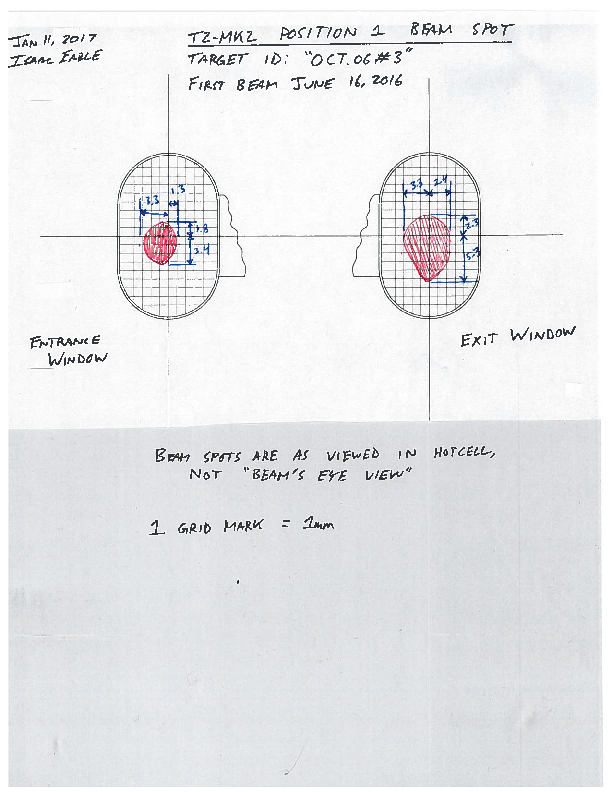 JAN 11, 2017
ISAAC EARLE
T2-MK2 POSITION 1 BEAM SPOT
TARGET ID: "OCT.06#3"
FIRST BEAM JUNE 16, 2016
3.3 1.3
1.8
3.4
3.3 2.4
2.3
5.3
ENTRANCE
WINDOW
EXIT WINDOW
BEAM SPOTS ARE AS VIEWED IN HOTCELL,
NOT "BEAM'S EYE VIEW"
1 GRID MARK = 1mm